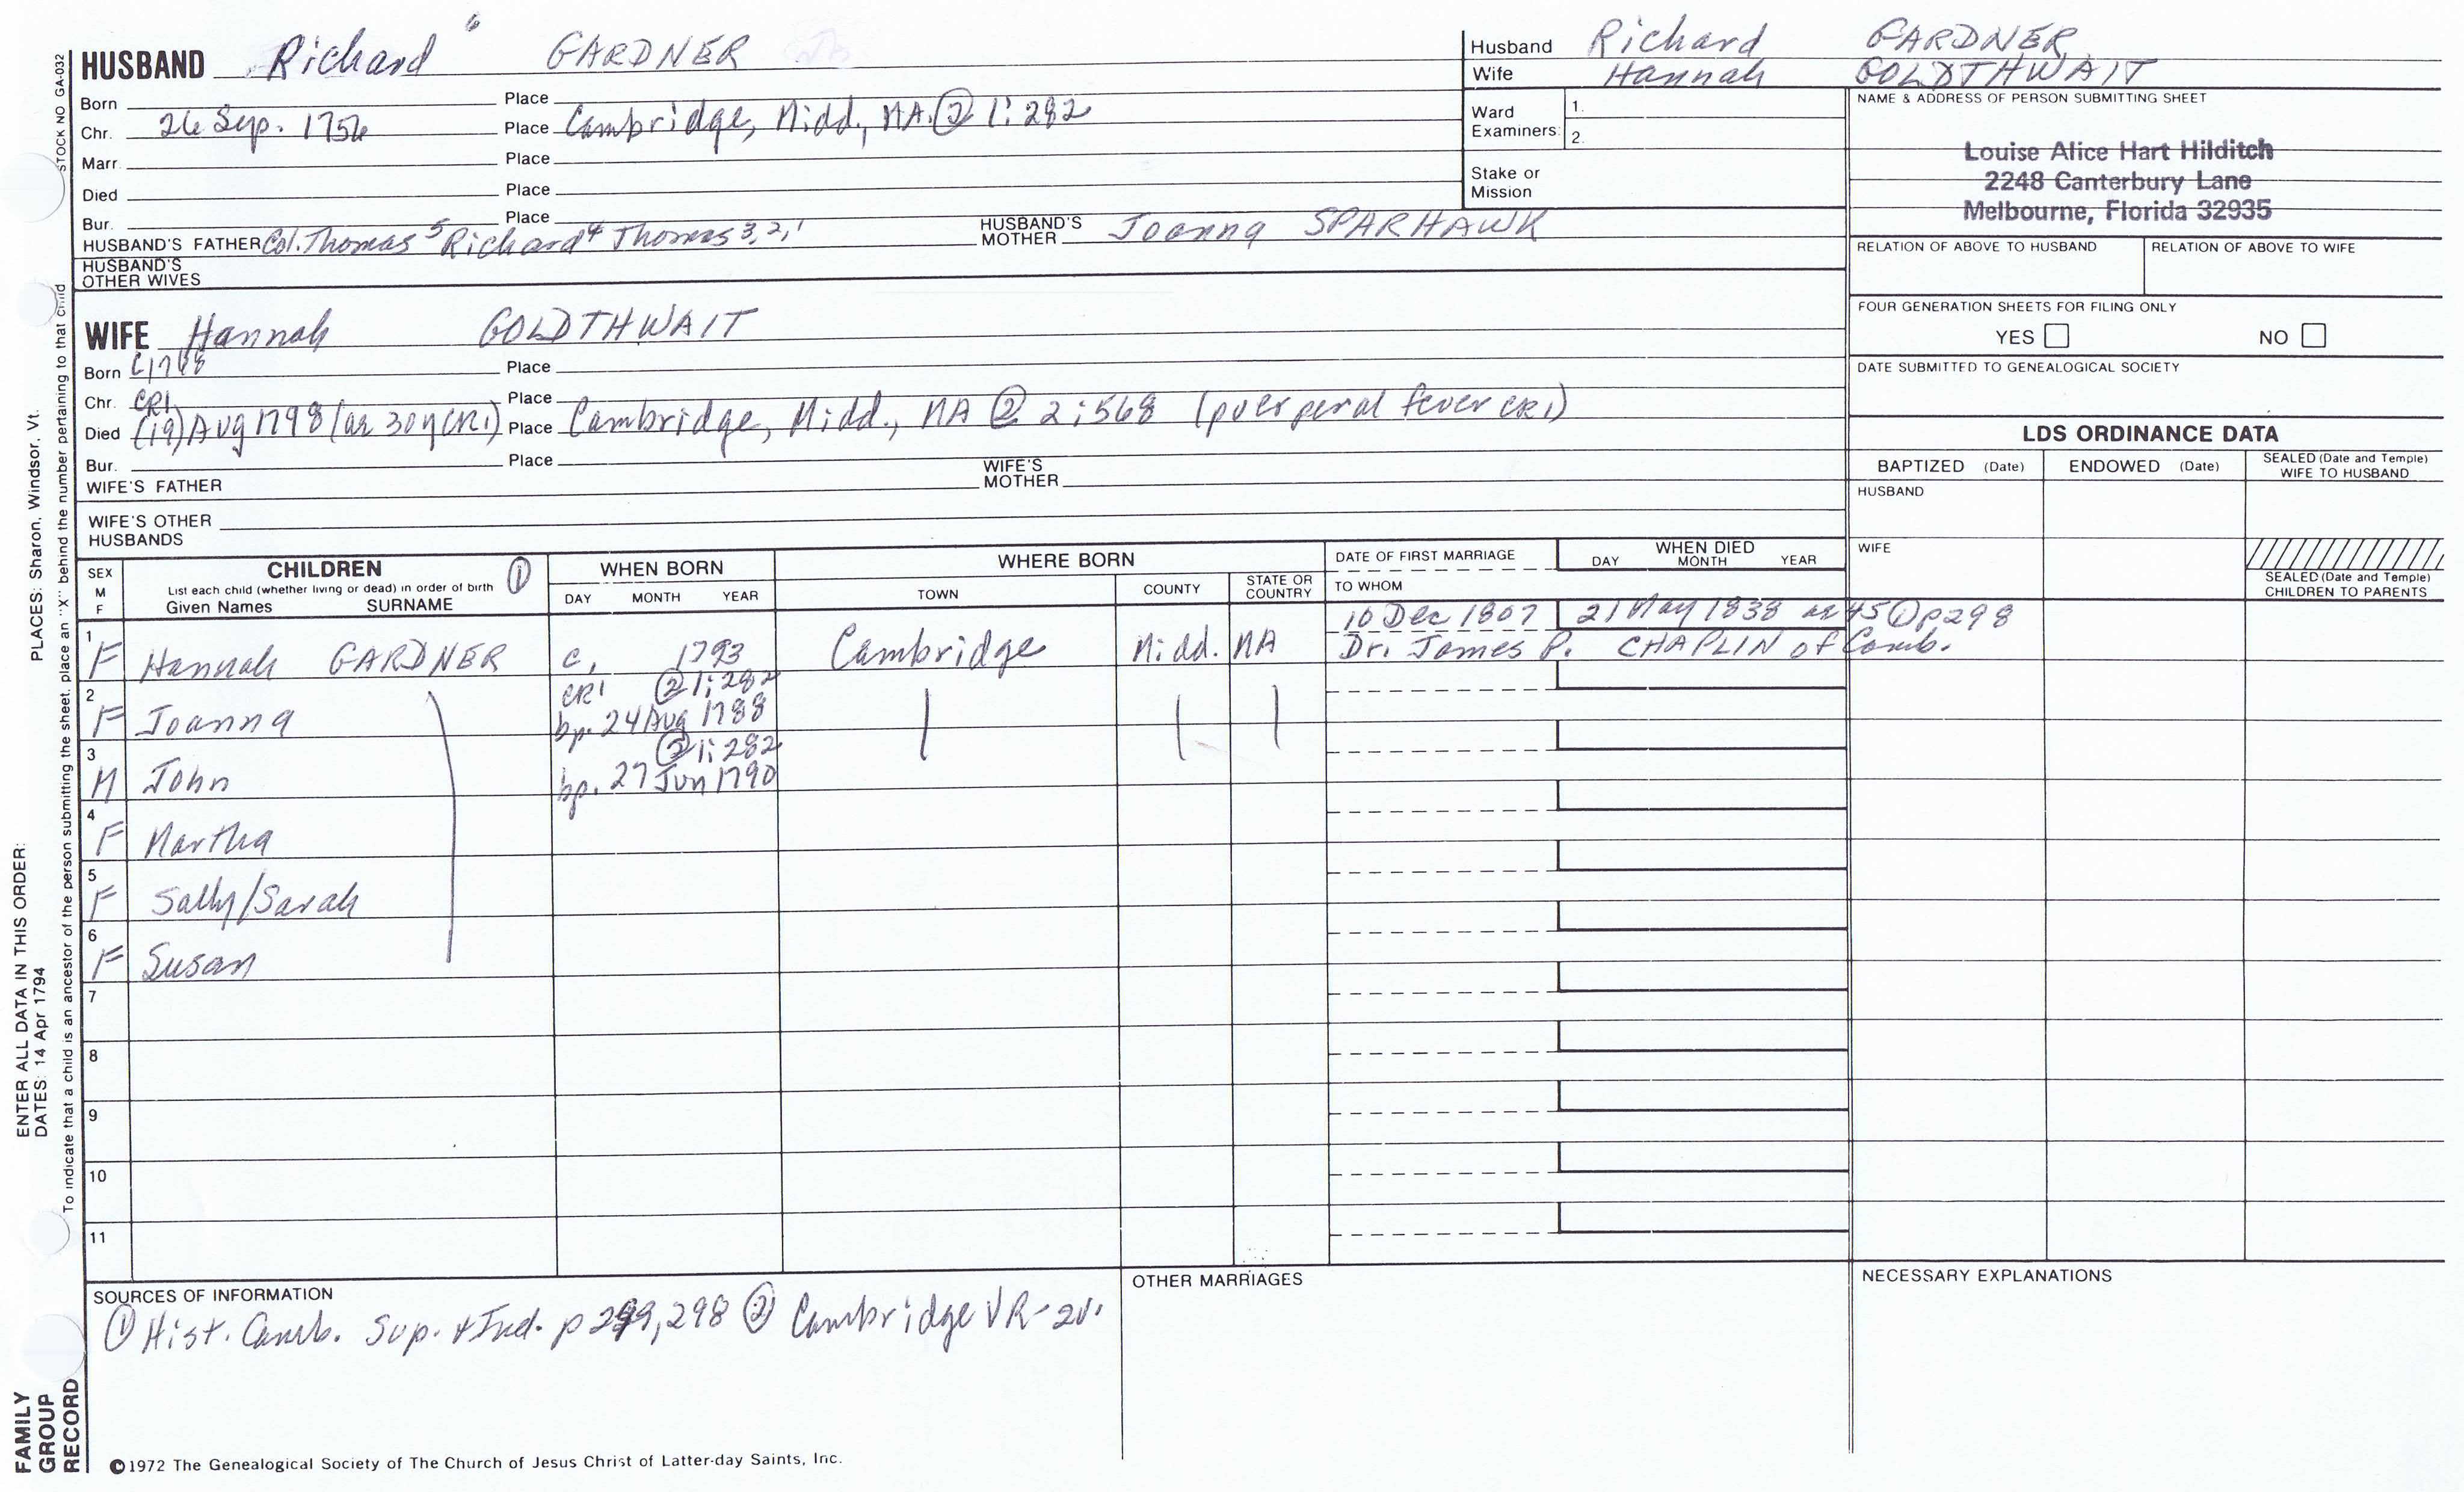 HUSBAND Richard 6 GARDNER
Born Place
Chr. 26 Sep. 1756 Place Cambridge, Midd., MA. ② 1:282
Marr. Place
Died Place
Bur. Place
HUSBAND'S FATHER Col. Thomas 5 Richard 4 Thomas 3,2,1 HUSBAND'S MOTHER Joanna SPARHAWK
HUSBAND'S OTHER WIVES
Husband Richard GARDNER
Wife Hannah GOLDTHWAIT
Ward Examiners: 1.
2.
Stake or Mission
NAME & ADDRESS OF PERSON SUBMITTING SHEET
Louise Alice Hart Hilditch
2248 Canterbury Lane
Melbourne, Florida 32935
RELATION OF ABOVE TO HUSBAND RELATION OF ABOVE TO WIFE
FOUR GENERATION SHEETS FOR FILING ONLY
YES NO
DATE SUBMITTED TO GENEALOGICAL SOCIETY
WIFE Hannah GOLDTHWAIT
Born C1768 Place
Chr. CR1 Place
Died (19) Aug 1798 (ae 30y CR1) Place Cambridge, Midd., MA ② 2:568 (puerperal fever CR1)
Bur. Place
WIFE'S FATHER WIFE'S MOTHER
WIFE'S OTHER HUSBANDS
LDS ORDINANCE DATA
BAPTIZED (Date) ENDOWED (Date) SEALED (Date and Temple) WIFE TO HUSBAND
HUSBAND
WIFE
SEALED (Date and Temple) CHILDREN TO PARENTS
SEX M F CHILDREN ①
List each child (whether living or dead) in order of birth
Given Names SURNAME
WHEN BORN
DAY MONTH YEAR
WHERE BORN
TOWN COUNTY STATE OR COUNTRY
DATE OF FIRST MARRIAGE
TO WHOM
WHEN DIED
DAY MONTH YEAR
10 Dec 1807 21 May 1838 ae 45 ① p298
1 F Hannah GARDNER c. 1793 Cambridge Midd. MA Dr. James P. CHAPLIN of Camb.
CR1 ② 1:282
2 F Joanna bp. 24 Aug 1788
② 1:282
3 M John bp. 27 Jun 1790
4 F Martha
5 F Sally/Sarah
6 F Susan
7
8
9
10
11
SOURCES OF INFORMATION
① Hist. Camb. Sup. & Ind. p 299, 298 ② Cambridge VR-2v.
OTHER MARRIAGES
NECESSARY EXPLANATIONS
©1972 The Genealogical Society of The Church of Jesus Christ of Latter-day Saints, Inc.
STOCK NO GA-032
To indicate that a child is an ancestor of the person submitting the sheet, place an "X" behind the number pertaining to that child
ENTER ALL DATA IN THIS ORDER:
DATES: 14 Apr 1794
PLACES: Sharon, Windsor, Vt.
FAMILY
GROUP
RECORD